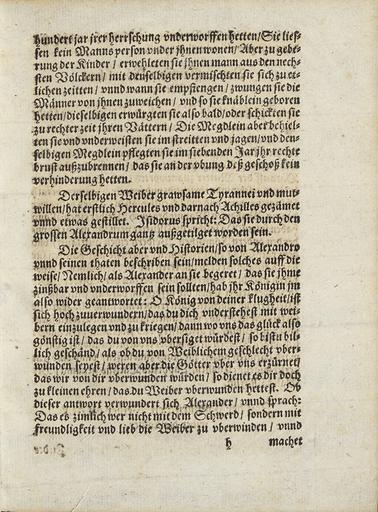 hundert jar jrer herrschung vnderworffen hetten/ Sie lies-
sen kein Manns person vnder jhnen wonen/ Aber zu gebe-
rung der Kinder/ erwehleten sie jhnen mann aus den nech-
sten Völckern/ mit denselbigen vermischten sie sich zu et-
lichen zeitten/ vnnd wann sie empfiengen/ zwungen sie die
Männer von jhnen zuweichen/ vnd so sie knäblein geboren
hetten/ dieselbigen erwürgten sie also bald/ oder schickten sie
zu rechter zeit jhren Vättern/ Die Megdlein aber behiel-
ten sie vnd vnderweisten sie im streitten vnd jagen/ vnd dem
selbigen Megdlein pflegten sie im siebenden Jar jhr rechte
brust außzubrennen/ das sie an der vbung deß geschoß kein
verhinderung hetten.
Derselbigen Weiber grawsame Tyrannei vnd mut-
willen/ hat erstlich Hercules vnd darnach Achilles gezämet
vnnd etwas gestillet. Isidorus spricht: Das sie durch den
grossen Alexandrum gantz außgetilget worden sein.
Die Geschicht aber vnd Historien/ so von Alexandro
vnnd seinen thaten beschriben sein/ melden solches auff die
weise/ Nemlich/ als Alexander an sie begeret/ das sie jhme
zinßbar vnd vnderworffen sein sollten/ hab jhr Königin jm
also wider geantwortet: O König von deiner klugheit/ ist
sich hoch zuuerwundern/ das du dich vnderstehest mit wei-
bern einzulegen vnd zu kriegen/ dann wo vns das glück also
gönstig ist/ das du von vns vbersiget würdest/ so bistu bil-
lich geschänd/ als ob du von Weiblichem geschlecht vber-
wunden seyest/ weren aber die Götter vber vns erzürnet/
das wir von dir vberwunden würden/ so dienet es dir doch
zu kleinen ehren/ das du Weiber vberwunden hettest. Ob
dieser antwort verwundert sich Alexander/ vnnd sprach:
Das es zimlich wer nicht mit dem Schwerd/ sondern mit
freundligkeit vnd lieb die Weiber zu vberwinden/ vnnd
h machet